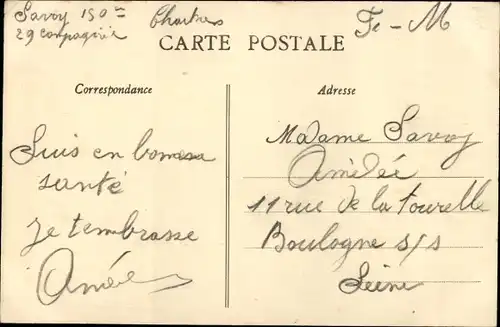 Savoy 150e Chartres
29 compagnie
Fe - M
CARTE POSTALE
Correspondance
Suis en bonnesa
santé
je tembrasse
Amée
Adresse
Madame Savoy
Amédée
11 rue de la tourelle
Boulogne s/s
Seine